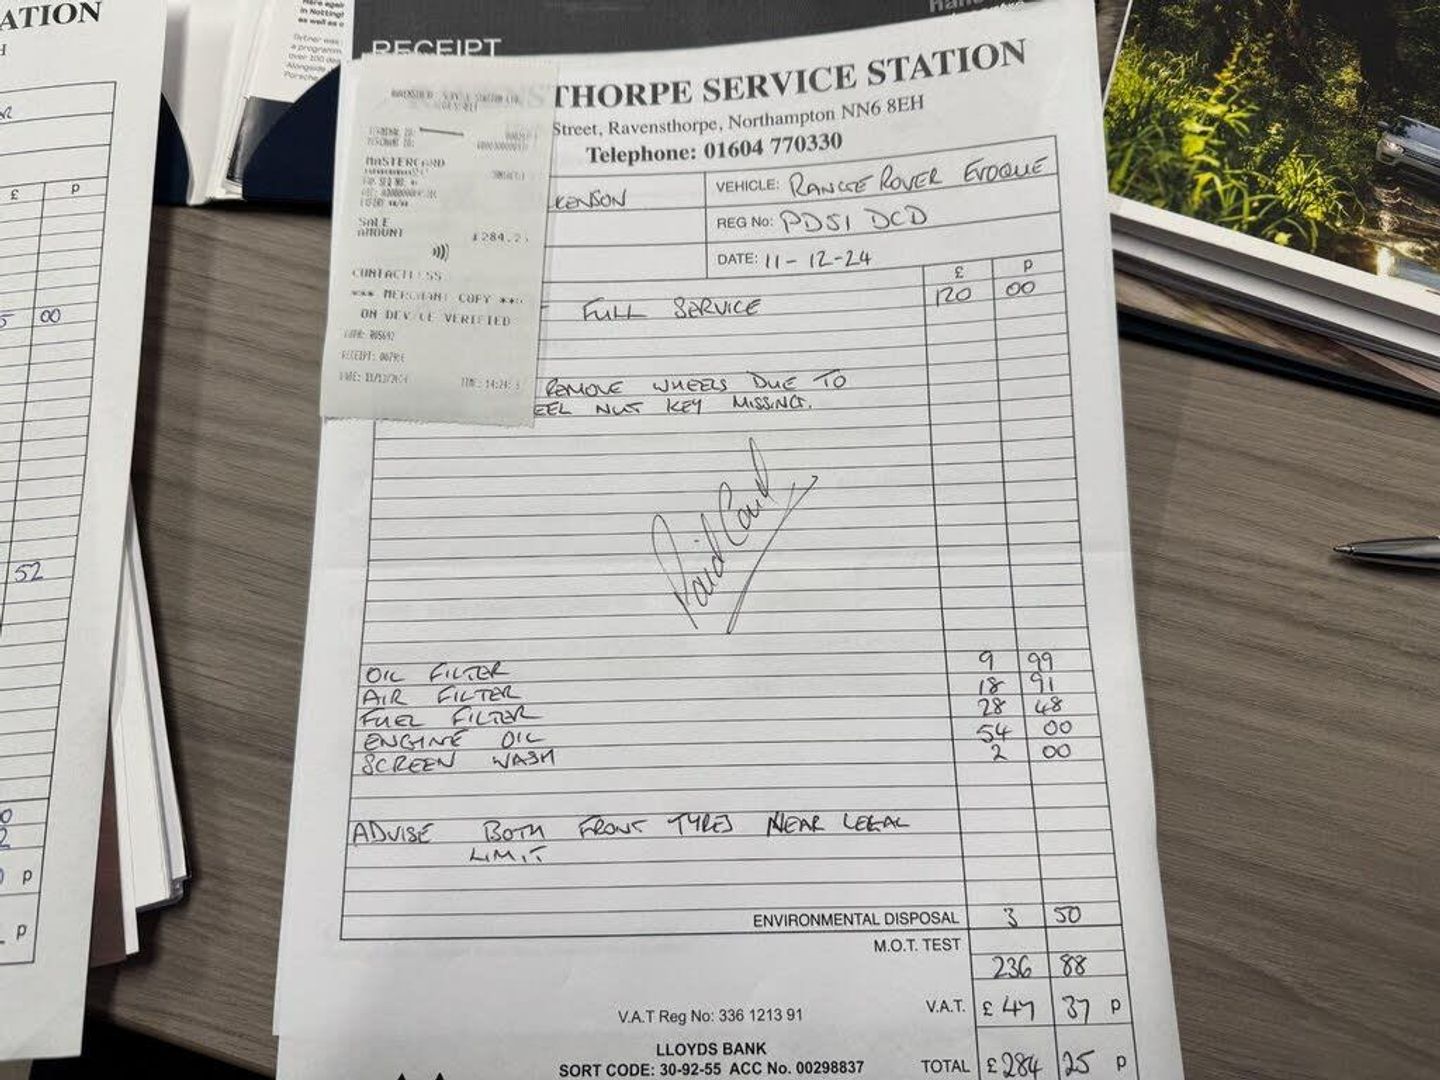 ATION
H
£ P
5 00
52
2
P
P
Here again
in Notting
as well as
a programm
over 100 des
Alongside
Porsche
RECEIPT
THORPE SERVICE STATION
Street, Ravensthorpe, Northampton NN6 8EH
Telephone: 01604 770330
KENSON
VEHICLE: RANGE ROVER EVOQUE
REG No: PD51 DCD
DATE: 11-12-24
£ P
FULL SERVICE 120 00
REMOVE WHEELS DUE TO
EEL NUT KEY MISSING.
Paid Card
OIL FILTER 9 99
AIR FILTER 18 91
FUEL FILTER 28 48
ENGINE OIL 54 00
SCREEN WASH 2 00
ADVISE BOTH FRONT TYRES NEAR LEGAL
LIMIT
ENVIRONMENTAL DISPOSAL 3 50
M.O.T. TEST
236 88
V.A.T Reg No: 336 1213 91
V.A.T. £ 47 37 P
LLOYDS BANK
SORT CODE: 30-92-55 ACC No. 00298837
TOTAL £ 284 25 P
MASTERCARD
SALE
AMOUNT £284.2
CONTACTLESS
*** MERCHANT COPY ***
ON DEVICE VERIFIED